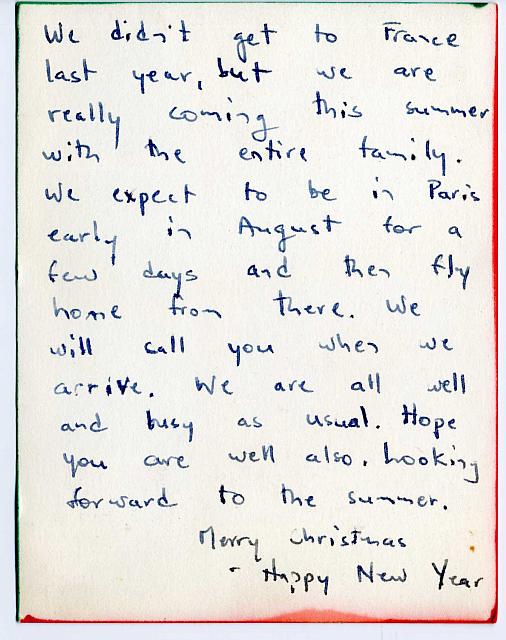 We didn't get to France
last year, but we are
really coming this summer
with the entire family.
We expect to be in Paris
early in August for a
few days and then fly
home from there. We
will call you when we
arrive. We are all well
and busy as usual. Hope
you are well also. Looking
forward to the summer.
Merry Christmas
- Happy New Year